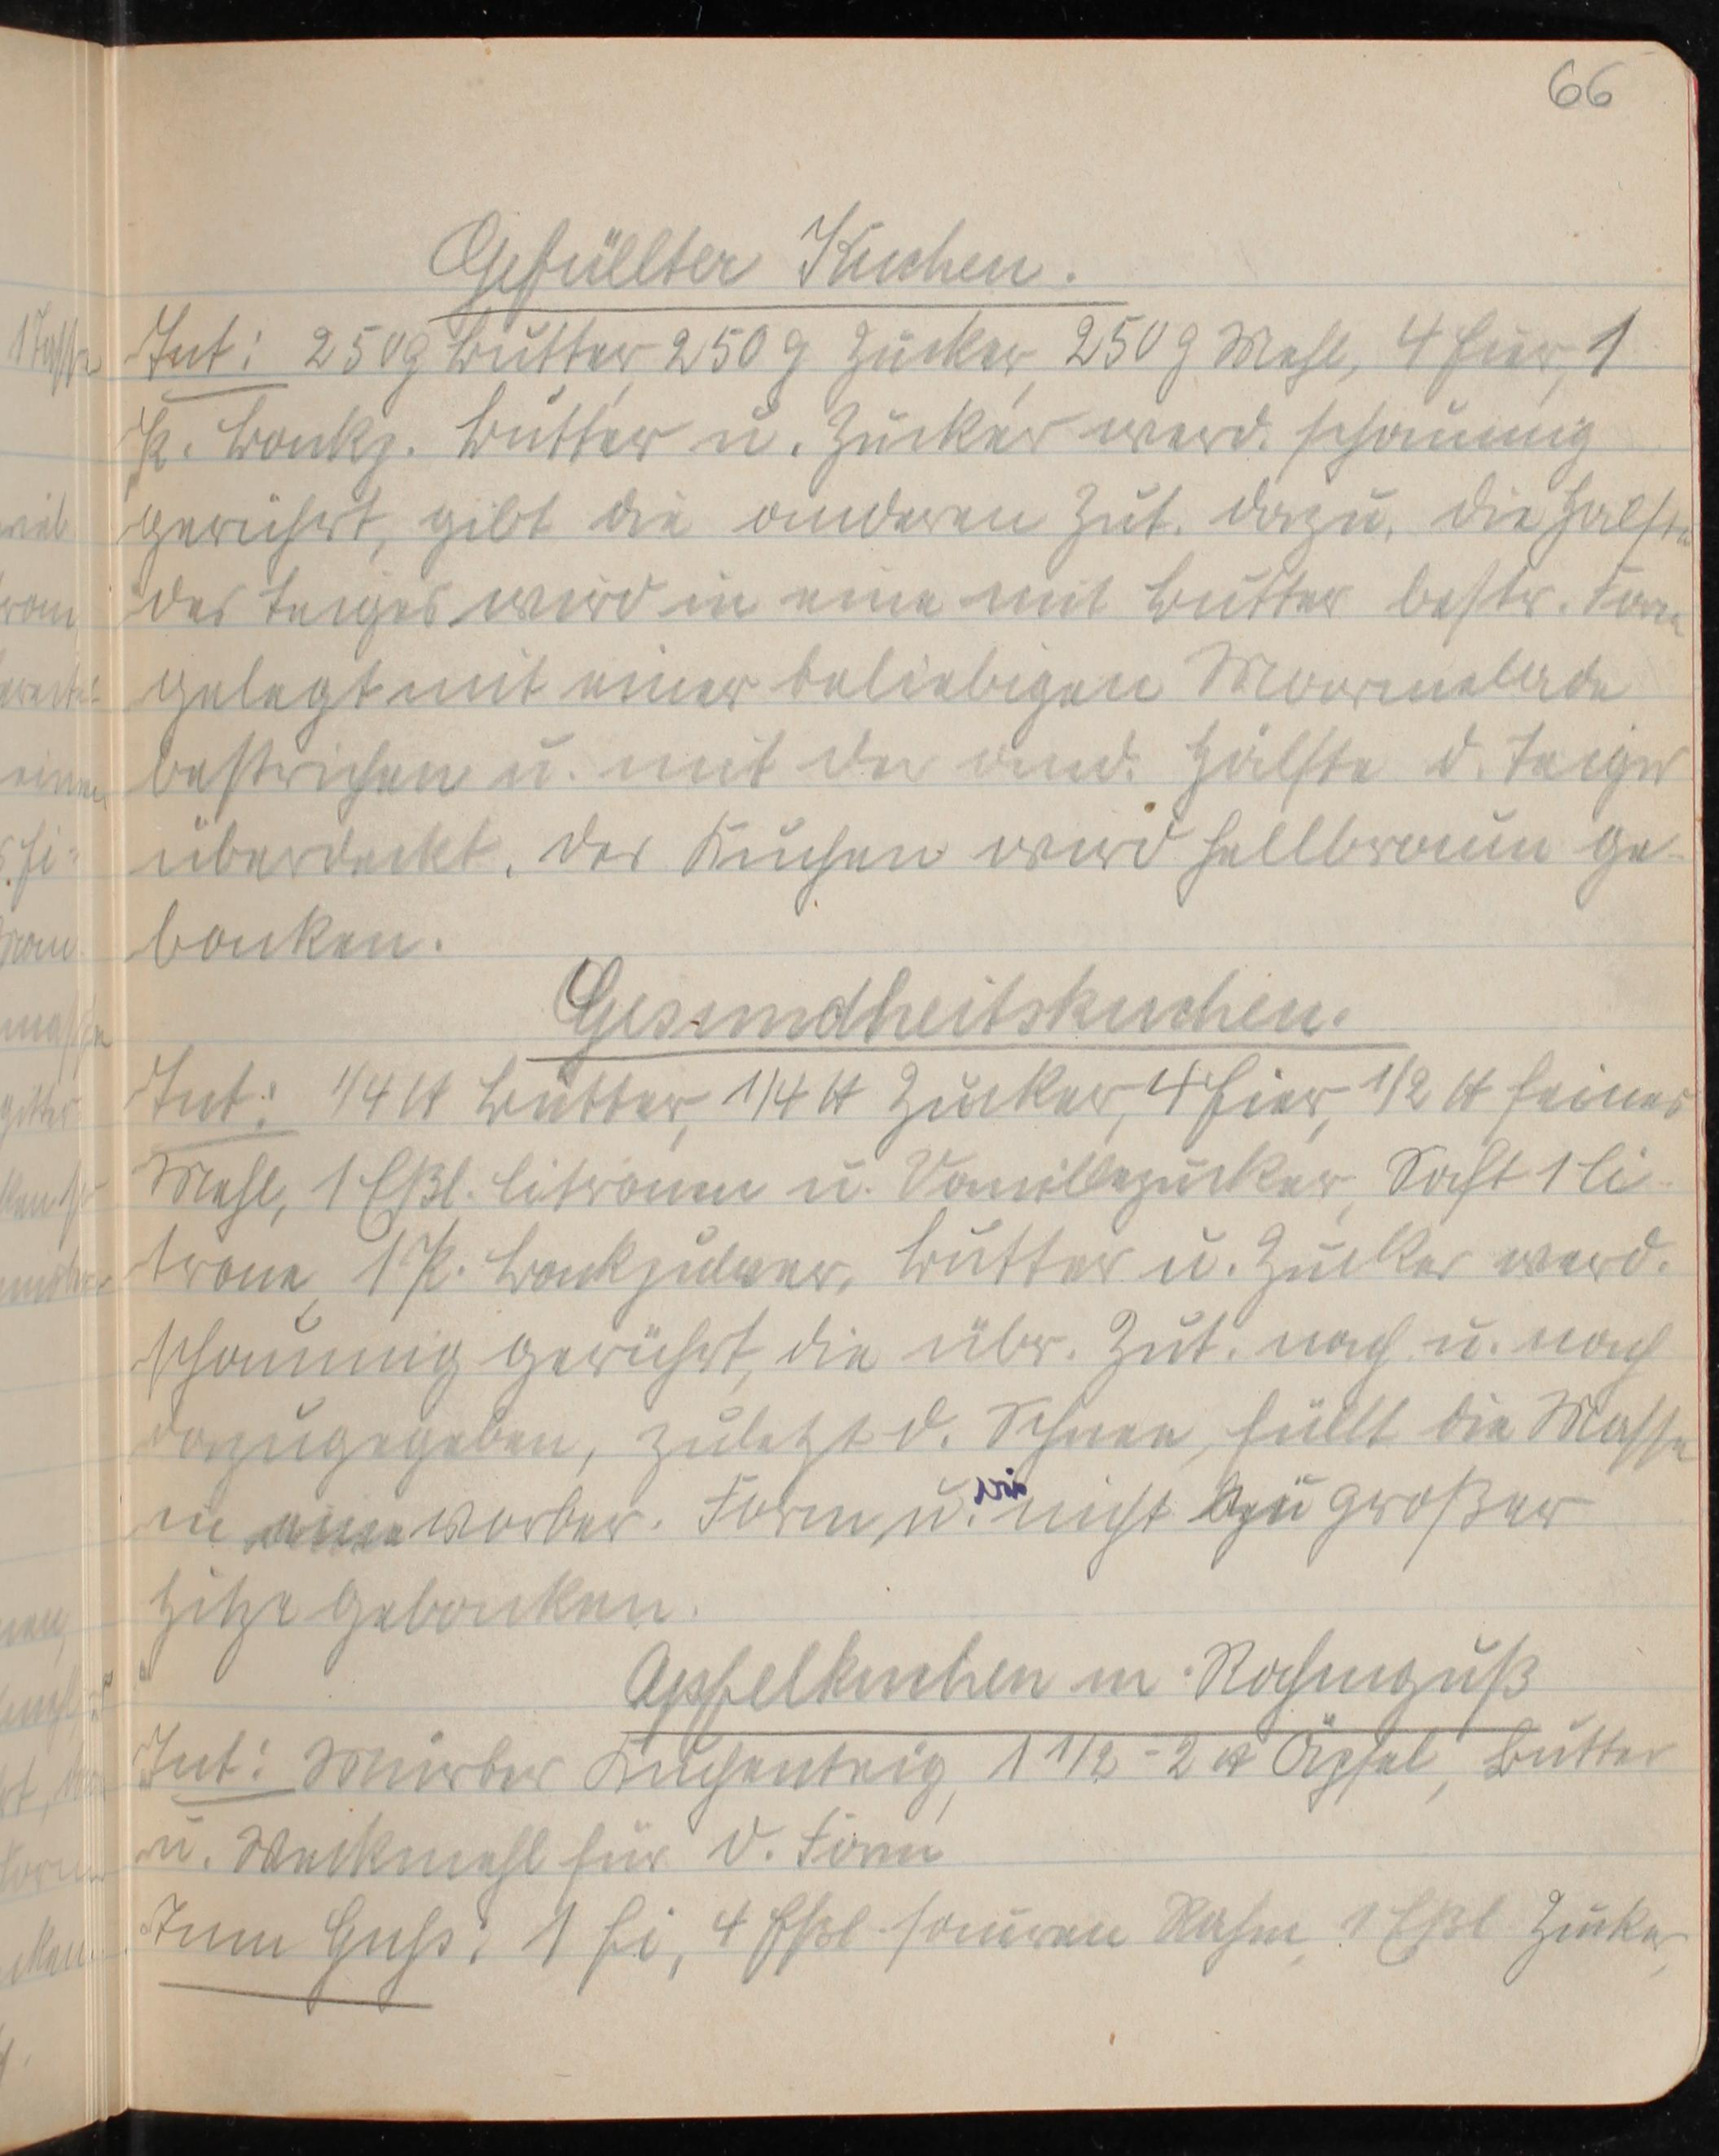 66
Gefüllter Kuchen.
Zut: 250g Butter, 250g Zucker, 250g Mehl, 4 Eier, 1
P. Backp. Butter u. Zucker werd. schaumig
gerührt, gibt die anderen Zut. dazu. Die Hälfte
des Teiges wird in eine mit Butter bestr. Form
gelegt mit einer beliebigen Marmelade
bestrichen u. mit der and. Hälfte d. Teiges
überdeckt. Der Kuchen wird hellbraun ge-
backen.
Gesundheitskuchen.
Zut: 1/4 ℔ Butter, 1/4 ℔ Zucker, 4 Eier, 1/2 ℔ feines
Mehl, 1 Eßl. Citronen u. Vanillezucker, Saft 1 Ci-
trone, 1 P. Backpulver, Butter u. Zucker werd.
schaumig gerührt, die übr. Zut. nach u. nach
dazugegeben, zuletzt d. Schnee, füllt die Masse
in eine vorber. Form, u. nicht zu großer
Hitze gebacken.
Apfelkuchen m. Rahmguß
Zut: Mürber Kuchenteig, 1 1/2 - 2 ℔ Äpfel, Butter
u. Weckmehl für d. Form
Zum Guß: 1 Ei, 4 Eßl. sauren Rahm, 1 Eßl. Zucker,